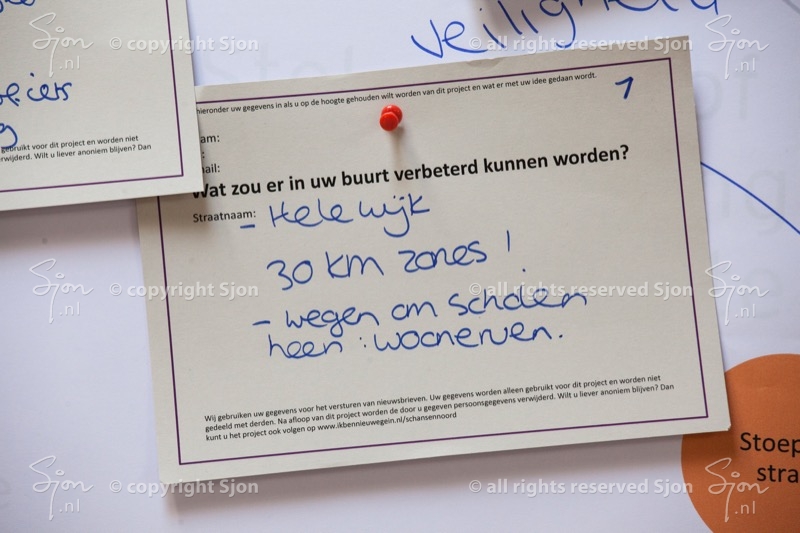 veiligheid
eiers
g
gebruikt voor dit project en worden niet
erwijderd. Wilt u liever anoniem blijven? Dan
hieronder uw gegevens in als u op de hoogte gehouden wilt worden van dit project en wat er met uw idee gedaan wordt.
1
aam:
:
mail:
Wat zou er in uw buurt verbeterd kunnen worden?
Straatnaam:
- Hele wijk
30 km zones !
- wegen om scholen
heen : woonerven.
Wij gebruiken uw gegevens voor het versturen van nieuwsbrieven. Uw gegevens worden alleen gebruikt voor dit project en worden niet
gedeeld met derden. Na afloop van dit project worden de door u gegeven persoonsgegevens verwijderd. Wilt u liever anoniem blijven? Dan
kunt u het project ook volgen op www.ikbennieuwegein.nl/schansennoord
Stoep
stra
Sjon.nl © copyright Sjon © all rights reserved Sjon Sjon.nl
Sjon.nl © copyright Sjon © all rights reserved Sjon Sjon.nl
Sjon.nl © copyright Sjon © all rights reserved Sjon Sjon.nl